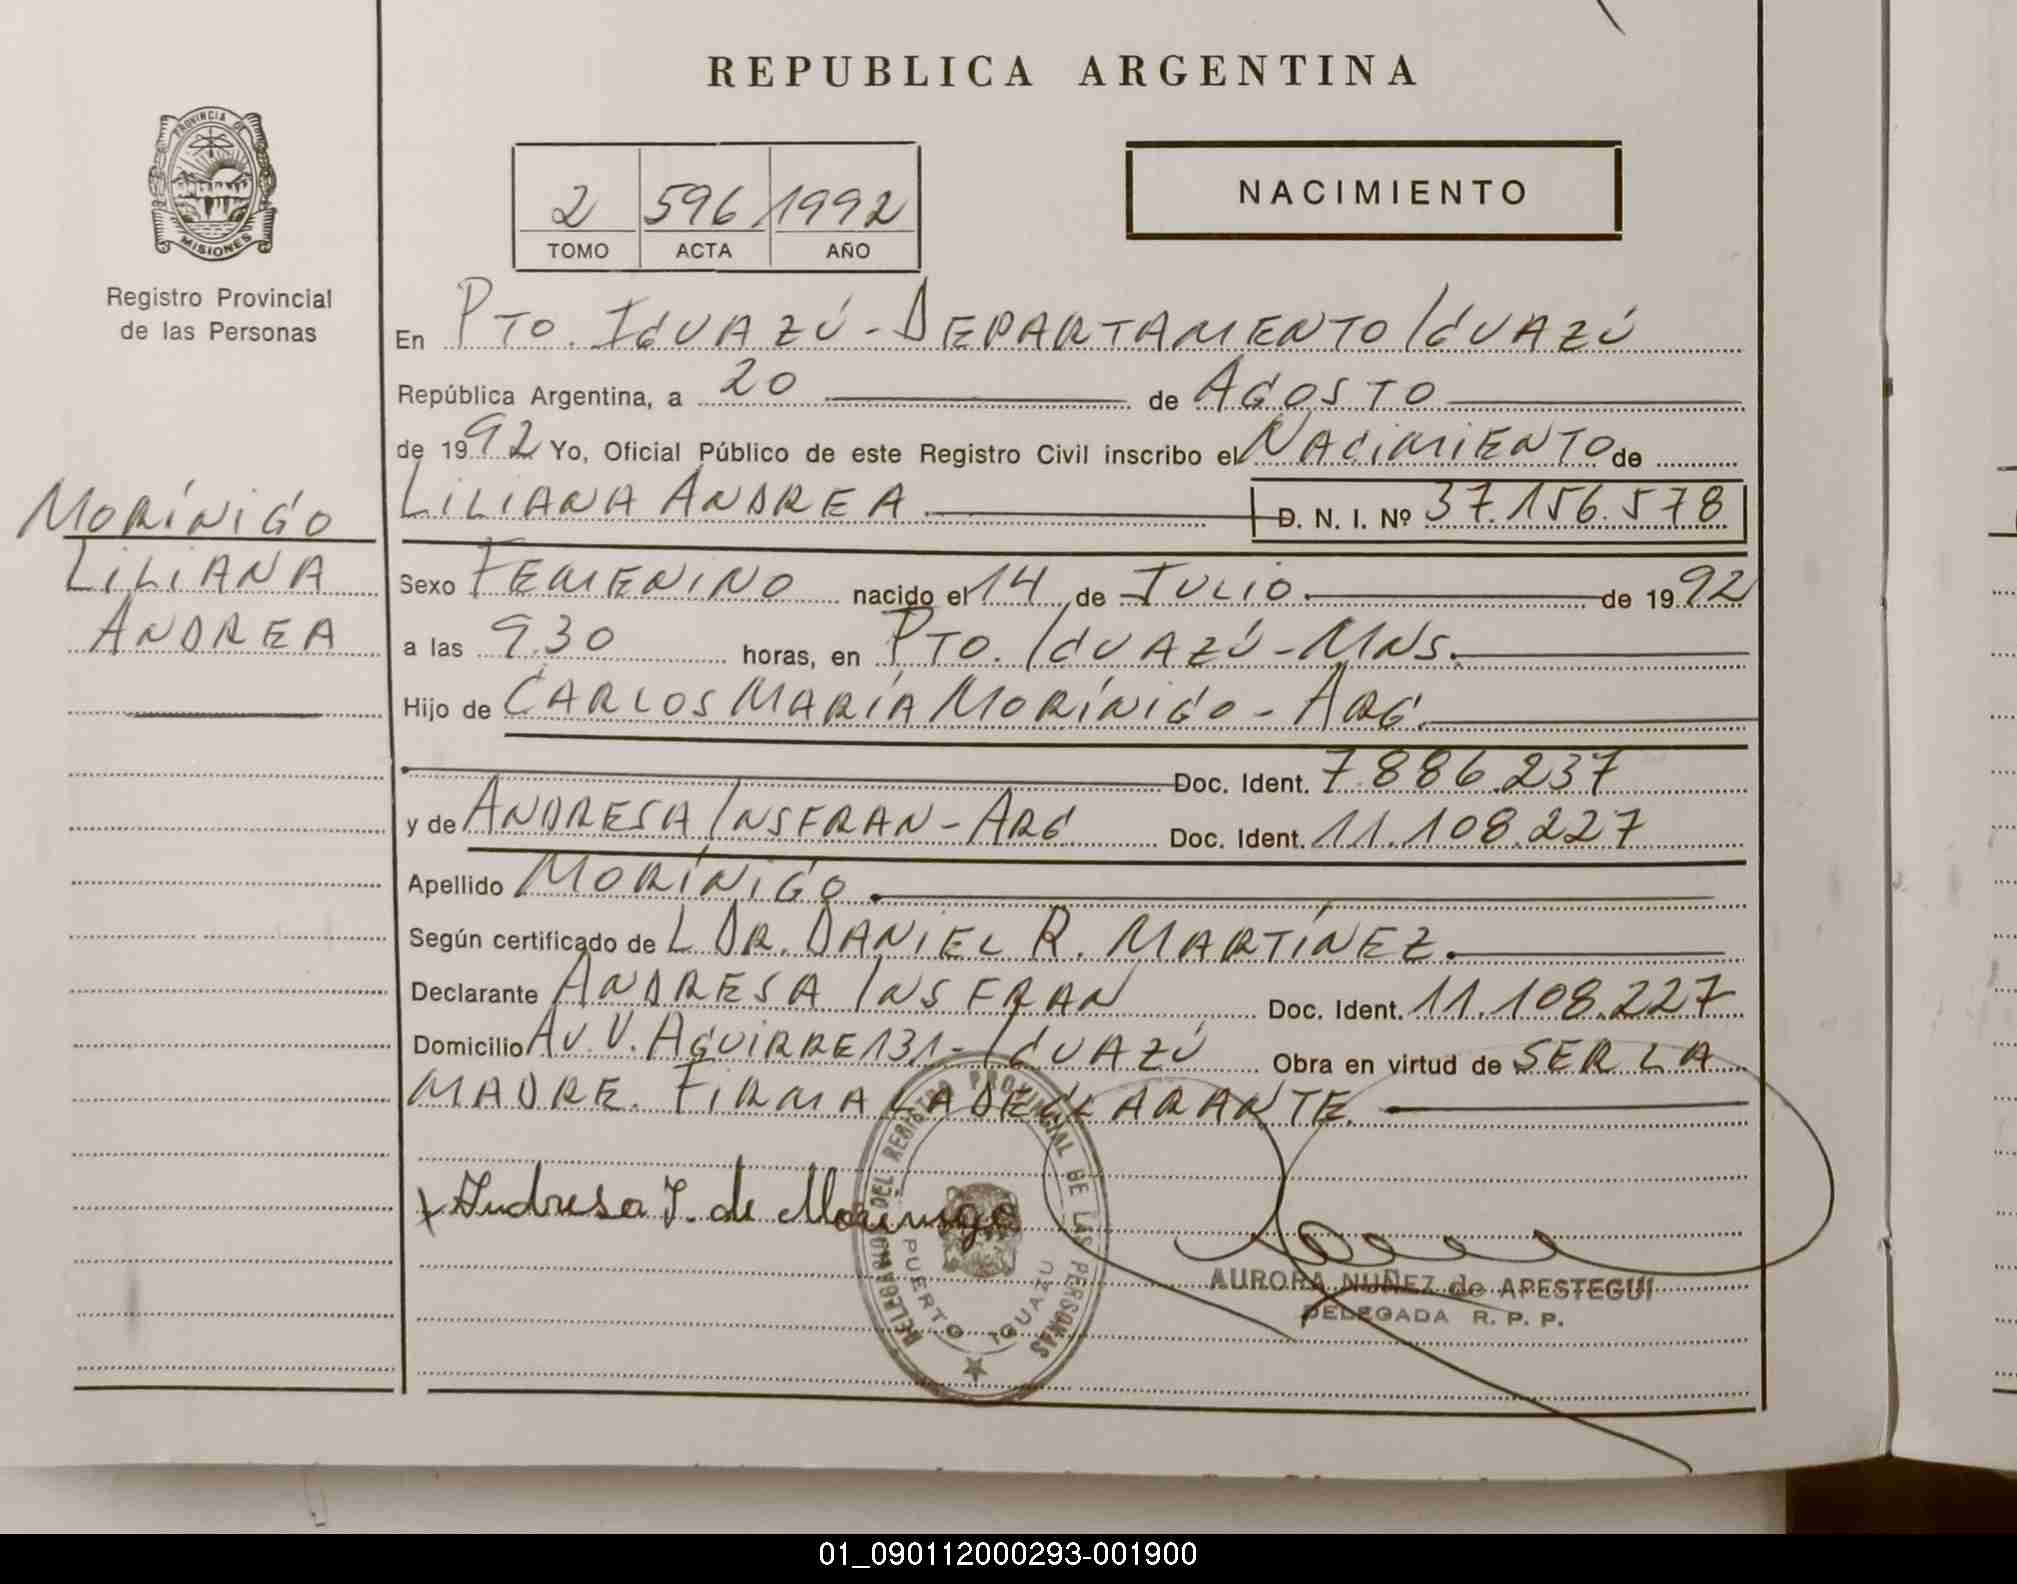 REPUBLICA ARGENTINA
PROVINCIA DE
MISIONES
Registro Provincial
de las Personas
2 596 1992
TOMO ACTA AÑO
NACIMIENTO
En PTO. IGUAZÚ - DEPARTAMENTO IGUAZÚ
República Argentina, a 20 de AGOSTO
de 1992 Yo, Oficial Público de este Registro Civil inscribo el NACIMIENTO de
LILIANA ANDREA D. N. I. Nº 37.156.578
MORÍNIGO
LILIANA
ANDREA
Sexo FEMENINO nacido el 14 de JULIO de 1992
a las 9.30 horas, en PTO. IGUAZÚ - MNS.
Hijo de CARLOS MARÍA MORÍNIGO - ARG.
Doc. Ident. 7.886.237
y de ANDRESA INSFRAN - ARG. Doc. Ident. 11.108.227
Apellido MORÍNIGO
Según certificado de L DR. DANIEL R. MARTÍNEZ.
Declarante ANDRESA INSFRAN Doc. Ident. 11.108.227
Domicilio AV. V. AGUIRRE 131 - IGUAZÚ Obra en virtud de SER LA
MADRE. FIRMA LA DECLARANTE.
x Andresa I. de Morinigo
DEL REGISTRO PROVINCIAL DE LAS PERSONAS
PUERTO IGUAZU
AURORA NUÑEZ de APESTEGUI
DELEGADA R. P. P.
01_090112000293-001900